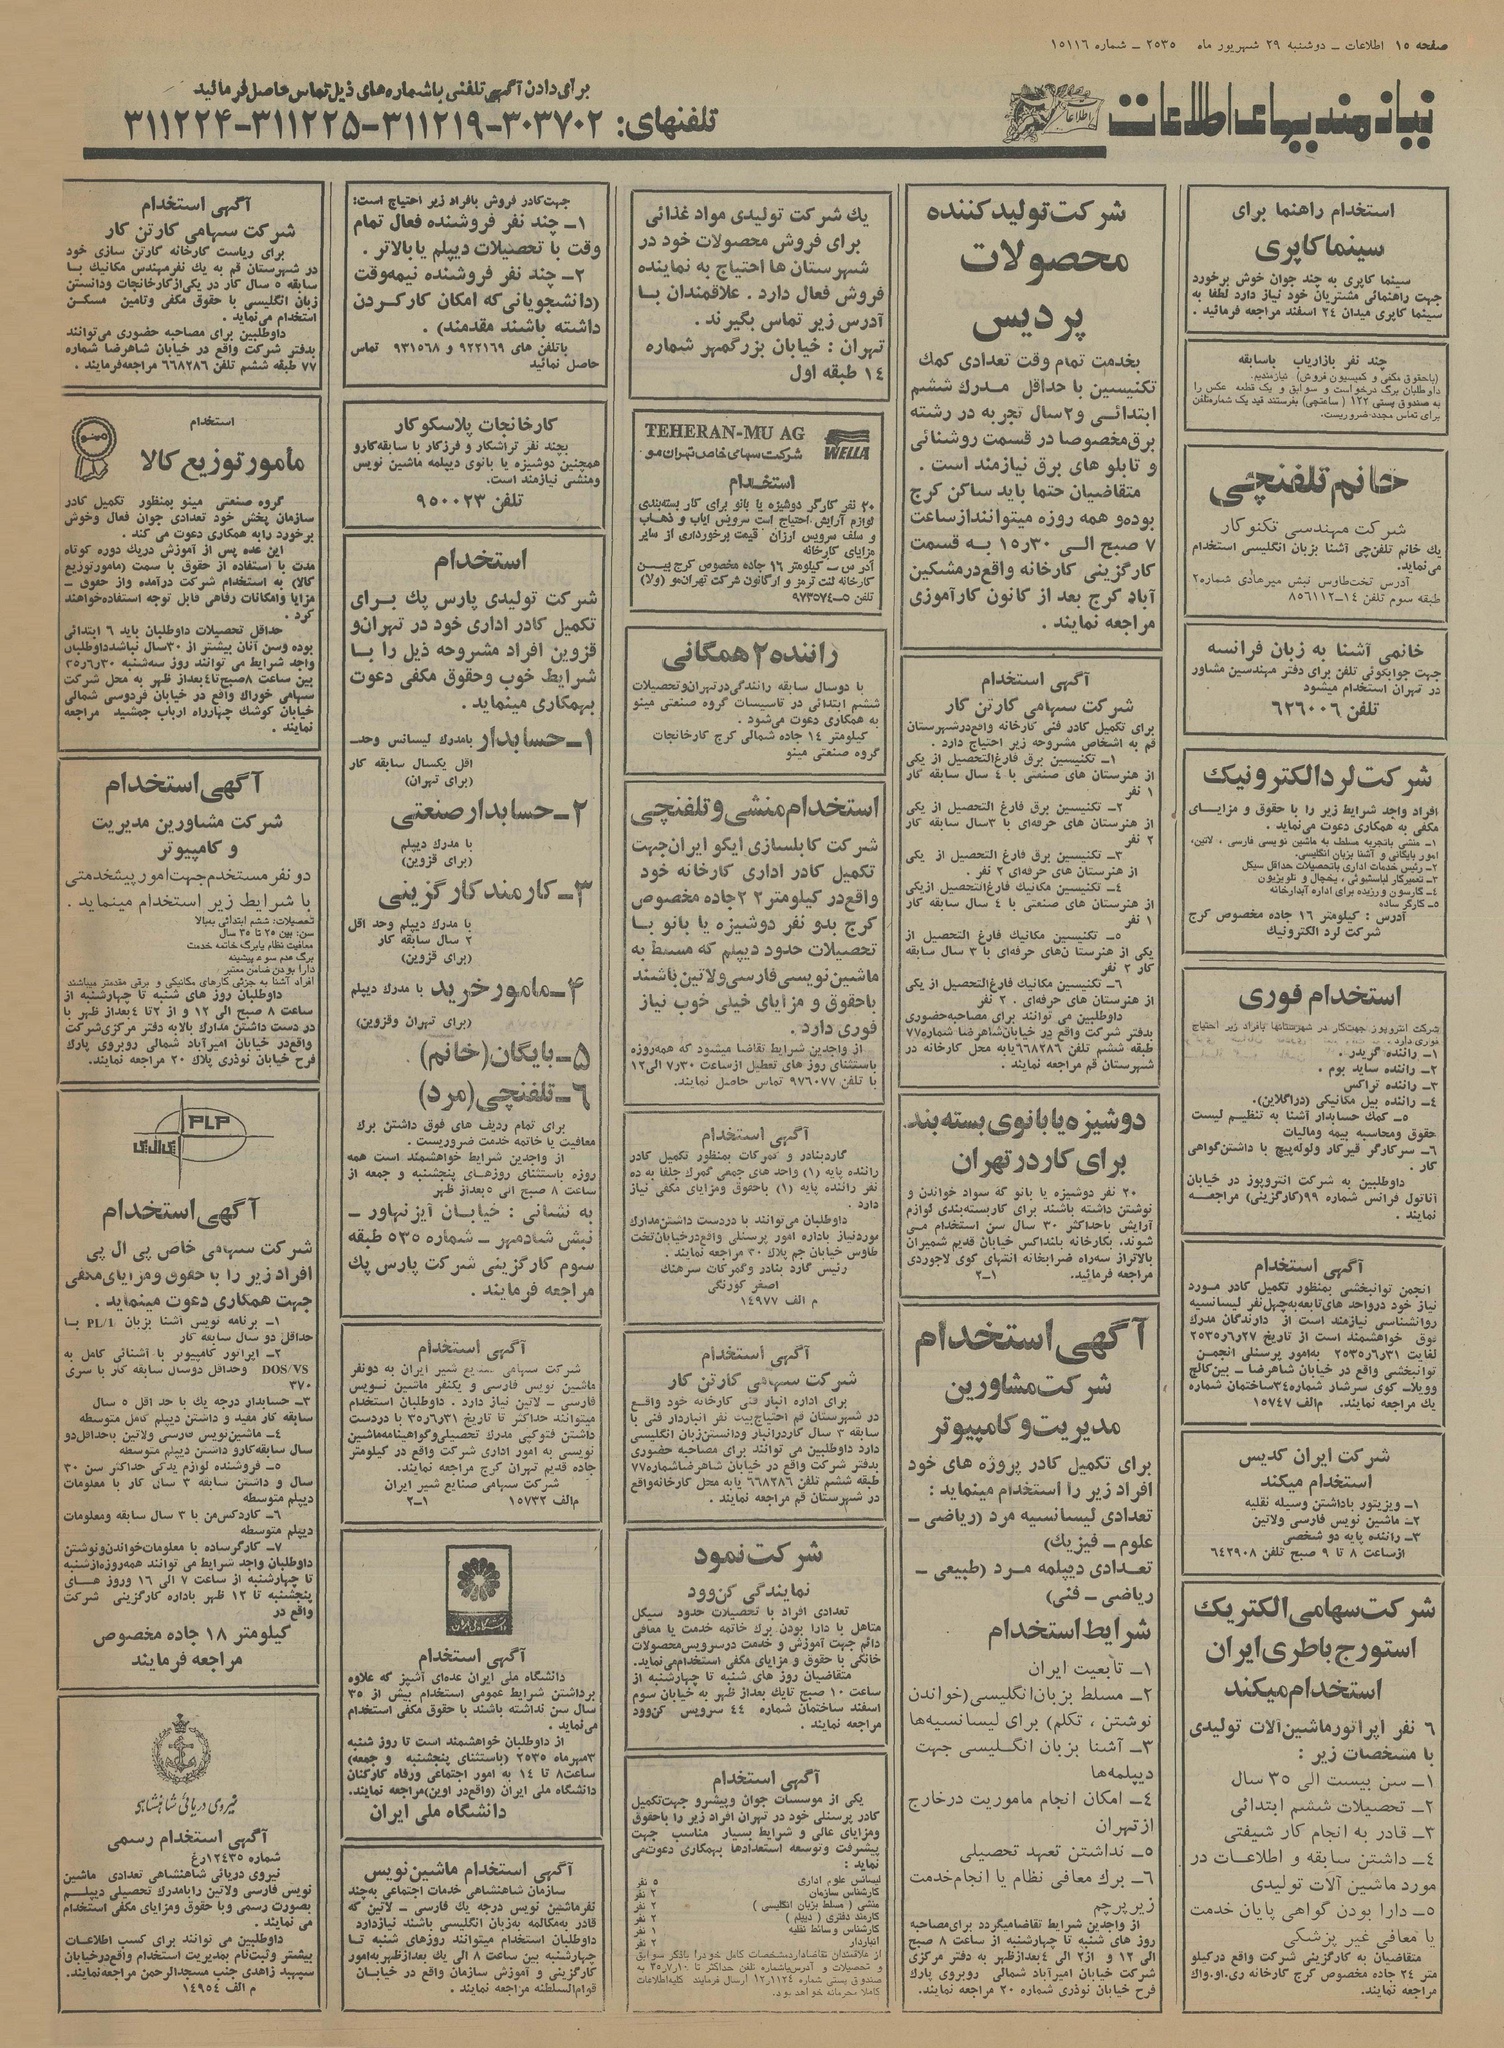 صفحه ۱۵ اطلاعات ـ دوشنبه ۲۹ شهریور ماه ۲۵۳۵ ـ شماره ۱۵۱۱۶
نیازمندیهای اطلاعات
برای دادن آگهی تلفنی باشماره‌های ذیل تماس حاصل فرمائید
تلفنهای: ۳۰۳۷۰۲-۳۱۱۲۱۹-۳۱۱۲۲۵-۳۱۱۲۲۴
استخدام راهنما برای
سینما کاپری
سینما کاپری به چند جوان خوش برخورد
جهت راهنمائی مشتریان خود نیاز دارد لطفا به
سینما کاپری میدان ۲۴ اسفند مراجعه فرمائید .
چند نفر بازاریاب باسابقه
(باحقوق مکفی و کمیسیون فروش) نیازمندیم.
داوطلبان برگ درخواست و سوابق و یک قطعه عکس را
به صندوق پستی ۱۲۲ (ساعتچی) بفرستند قید یک شماره‌تلفن
برای تماس مجدد ضروریست.
خانم تلفنچی
شرکت مهندسی تکنو کار
یك خانم تلفن‌چی آشنا بزبان انگلیسی استخدام
می‌نماید.
آدرس تخت‌طاوس نبش میرهادی شماره۲
طبقه سوم تلفن ۱۴-۸۵۶۱۱۲
خانمی آشنا به زبان فرانسه
جهت جوابگوئی تلفن برای دفتر مهندسین مشاور
در تهران استخدام میشود
تلفن ۶۲۶۰۰۶
شرکت لرد الکترونیك
افراد واجد شرایط زیر را با حقوق و مزایای
مکفی به همکاری دعوت می‌نماید .
۱ـ منشی باتجربه مسلط به ماشین نویسی فارسی ، لاتین،
امور بایگانی و آشنا بزبان انگلیسی.
۲ـ رئیس خدمات اداری باتحصیلات حداقل سیکل
۳ـ تعمیرکار لباسشوئی ، یخچال و تلویزیون
۴ـ گارسون ورزیده برای اداره آبدارخانه
۵ـ کارگر ساده
آدرس : کیلومتر ۱۶ جاده مخصوص کرج
شرکت لرد الکترونیك
استخدام فوری
شرکت انتروپوز جهت‌کار در شهرستانها بافراد زیر احتیاج
فوری دارد .
۱ـ راننده گریدر .
۲ـ راننده ساید بوم .
۳ـ راننده تراکس
۴ـ راننده بیل مکانیکی (دراگلاین).
۵ـ کمك حسابدار آشنا به تنظیم لیست
حقوق ومحاسبه بیمه ومالیات
۶ـ سرکارگر قیرکار ولوله‌پیچ با داشتن‌گواهی
کار .
داوطلبین به شرکت انتروپوز در خیابان
آناتول فرانس شماره ۹۹(کارگزینی) مراجعه
نمایند .
آگهی استخدام
انجمن توانبخشی بمنظور تکمیل کادر مورد
نیاز خود درواحد های‌تابعه‌به‌چهل‌نفر لیسانسیه
روانشناسی نیازمند است از دارندگان مدرك
فوق خواهشمند است از تاریخ ۲۵۳۵ر۶ر۲۷
لغایت ۲۵۳۵ر۶ر۳۱ به‌امور پرسنلی انجمن
توانبخشی واقع در خیابان شاهرضا ـ بین‌کالج
وویلا- کوی سرشار شماره۳۴ساختمان شماره
یك مراجعه نمایند. م‌الف ۱۵۷۴۷
شرکت ایران کدیس
استخدام میکند
۱ـ ویزیتور باداشتن وسیله نقلیه
۲ـ ماشین نویس فارسی ولاتین
۳ـ راننده پایه دو شخصی
ازساعت ۸ تا ۹ صبح تلفن ۶۴۳۹۰۸
شرکت سهامی الکتریك
استورج باطری ایران
استخدام میکند
۶ نفر اپراتور ماشین‌آلات تولیدی
با مشخصات زیر :
۱ـ سن بیست الی ۳۵ سال
۲ـ تحصیلات ششم ابتدائی
۳ـ قادر به انجام کار شیفتی
۴ـ داشتن سابقه و اطلاعات در
مورد ماشین آلات تولیدی
۵ـ دارا بودن گواهی پایان خدمت
یا معافی غیر پزشکی
متقاضیان به کارگزینی شرکت واقع درکیلو
متر ۲۴ جاده مخصوص کرج کارخانه ری.او.واك
مراجعه نمایند.
شرکت تولید کننده
محصولات
پردیس
بخدمت تمام وقت تعدادی کمك
تکنیسین با حداقل مدرك ششم
ابتدائی و۲سال تجربه در رشته
برق‌مخصوصا در قسمت روشنائی
و تابلو های برق نیازمند است .
متقاضیان حتما باید ساکن کرج
بوده‌و همه روزه میتوانندازساعت
۷ صبح الی ۳۰ر۱۵ به قسمت
کارگزینی کارخانه واقع‌درمشکین
آباد کرج بعد از کانون کارآموزی
مراجعه نمایند .
آگهی استخدام
شرکت سهامی کارتن کار
برای تکمیل کادر فنی کارخانه واقع‌درشهرستان
قم به اشخاص مشروحه زیر احتیاج دارد .
۱ـ تکنیسین برق فارغ‌التحصیل از یکی
از هنرستان های صنعتی با ۴ سال سابقه کار
۱ نفر
۲ـ تکنیسین برق فارغ التحصیل از یکی
از هنرستان های حرفه‌ای با ۳سال سابقه کار
۲ نفر
۳ـ تکنیسین برق فارغ التحصیل از یکی
از هنرستان های حرفه‌ای ۲ نفر .
۴ـ تکنیسین مکانیك فارغ‌التحصیل ازیکی
از هنرستان های صنعتی با ۴ سال سابقه کار
۱ نفر
۵ـ تکنیسین مکانیك فارغ‌التحصیل از
یکی از هنرستا ن‌های حرفه‌ای با ۳ سال سابقه
کار ۲ نفر
۶ـ تکنیسین مکانیك فارغ‌التحصیل از یکی
از هنرستان های حرفه‌ای . ۲ نفر
داوطلبین می توانند برای مصاحبه‌حضوری
بدفتر شرکت واقع در خیابان‌شاهرضا شماره۷۷
طبقه ششم تلفن ۶۶۸۲۸۶یابه محل کارخانه در
شهرستان قم مراجعه نمایند .
دوشیزه یا بانوی بسته بند
برای کار در تهران
۲۰ نفر دوشیزه یا بانو که سواد خواندن و
نوشتن داشته باشند برای کاربسته‌بندی لوازم
آرایش باحداکثر ۳۰ سال سن استخدام می
شوند. بکارخانه بلنداکس خیابان قدیم شمیران
بالاتراز سه‌راه ضرابخانه انتهای کوی لاجوردی
مراجعه فرمائید. ۲ـ۱
آگهی استخدام
شرکت مشاورین
مدیریت و کامپیوتر
برای تکمیل کادر پروژه های خود
افراد زیر را استخدام مینماید :
تعدادی لیسانسیه مرد (ریاضی ـ
علوم ـ فیزیك)
تعدادی دیپلمه مرد (طبیعی ـ
ریاضی ـ فنی)
شرایط استخدام
۱ـ تابعیت ایران
۲ـ مسلط بزبان‌انگلیسی(خواندن
نوشتن ، تکلم) برای لیسانسیه‌ها
۳ـ آشنا بزبان انگلیسی جهت
دیپلمه‌ها
۴ـ امکان انجام ماموریت درخارج
ازتهران
۵ـ نداشتن تعهد تحصیلی
۶ـ برك معافی نظام یا انجام‌خدمت
زیرپرچم
از واجدین شرایط تقاضامیگردد برای‌مصاحبه
روز های شنبه تا چهارشنبه از ساعت ۸ صبح
الی ۱۲ و از۲ الی ۴بعدازظهر به دفتر مرکزی
شرکت خیابان امیرآباد شمالی روبروی پارك
فرح خیابان نوذری شماره ۲۰ مراجعه نمایند.
یك شرکت تولیدی مواد غذائی
برای فروش محصولات خود در
شهرستان ها احتیاج به نماینده
فروش فعال دارد . علاقمندان با
آدرس زیر تماس بگیرند .
تهران : خیابان بزرگمهر شماره
۱۴ طبقه اول
TEHERAN-MU AG
WELLA
شرکت سهامی خاص تهران‌مو
استخدام
۲۰ نفر کارگر دوشیزه یا بانو برای کار بسته‌بندی
لوازم آرایش احتیاج است سرویس ایاب و ذهاب
و سلف سرویس ارزان قیمت برخورداری از سایر
مزایای کارخانه
آدرس ـ کیلومتر ۱۶ جاده مخصوص کرج بین
کارخانه لنت ترمز و ارگانون شرکت تهران‌مو (ولا)
تلفن ۵ـ۹۷۳۵۷۴
راننده ۲ همگانی
با دوسال سابقه رانندگی‌درتهران‌وتحصیلات
ششم ابتدائی در تاسیسات گروه صنعتی مینو
به همکاری دعوت می‌شود .
کیلومتر ۱۴ جاده شمالی کرج کارخانجات
گروه صنعتی مینو
استخدام منشی و تلفنچی
شرکت کابلسازی ایکو ایران‌جهت
تکمیل کادر اداری کارخانه خود
واقع‌در کیلومتر ۲۲جاده مخصوص
کرج بدو نفر دوشیزه یا بانو با
تحصیلات حدود دیپلم که مسلط به
ماشین‌نویسی‌فارسی‌ولاتین‌باشند
باحقوق و مزایای خیلی خوب نیاز
فوری دارد .
از واجدین شرایط تقاضا میشود که همه‌روزه
باستثنای روز های تعطیل ازساعت ۳۰ر۷ الی۱۲
با تلفن ۹۷۶۰۷۷ تماس حاصل نمایند.
آگهی استخدام
گاردبنادر و گمرکات بمنظور تکمیل کادر
راننده پایه (۱) واحد های جمعی گمرك جلفا به ده
نفر راننده پایه (۱) باحقوق ومزایای مکفی نیاز
دارد .
داوطلبان می‌توانند با دردست داشتن‌مدارك
موردنیاز باداره امور پرسنلی واقع‌درخیابان‌تخت
طاوس خیابان جم پلاك ۳۰ مراجعه نمایند .
رئیس گارد بنادر وگمرکات سرهنك
اصغر کورنگی
م الف ۱۴۹۷۷
آگهی استخدام
شرکت سهامی کارتن کار
برای اداره انبار فنی کارخانه خود واقع
در شهرستان قم احتیاج‌بیك نفر انباردار فنی با
سابقه ۳ سال کاردرانبار ودانستن‌زبان انگلیسی
دارد داوطلبین می توانند برای مصاحبه حضوری
بدفتر شرکت واقع در خیابان شاهرضاشماره۷۷
طبقه ششم تلفن ۶۶۸۲۸۶ یابه محل کارخانه‌واقع
در شهرستان قم مراجعه نمایند .
شرکت نمود
نمایندگی کن‌وود
تعدادی افراد با تحصیلات حدود سیکل
متاهل با دارا بودن برك خاتمه خدمت یا معافی
دائم جهت آموزش و خدمت درسرویس‌محصولات
خانگی با حقوق و مزایای مکفی استخدام‌می‌نماید.
متقاضیان روز های شنبه تا چهارشنبه از
ساعت ۱۰ صبح تایك بعداز ظهر به خیابان سوم
اسفند ساختمان شماره ۴۴ سرویس کن‌وود
مراجعه نمایند .
آگهی استخدام
یکی از موسسات جوان وپیشرو جهت‌تکمیل
کادر پرسنلی خود در تهران افراد زیر را باحقوق
ومزایای عالی و شرایط بسیار مناسب جهت
پیشرفت وتوسعه استعدادها بهمکاری دعوت‌می
نماید :
لیسانس علوم اداری ۵ نفر
کارشناس سازمان ۲ نفر
منشی ( مسلط بزبان انگلیسی ) ۲ نفر
کارمند دفتری ( دیپلم ) ۲ نفر
کارشناس وسائط نقلیه ۱ نفر
انباردار ۲ نفر
از علاقمندان تقاضادارد‌مشخصات کامل خودرا باذکر سوابق
و تحصیلات و آدرس‌باشماره تلفن حداکثر تا ۱۰ر۷ر۳۵ به
صندوق پستی شماره ۱۲ر۱۱۲۴ ارسال فرمایند کلیه‌اطلاعات
کاملا محرمانه خواهد بود.
جهت‌کادر فروش بافراد زیر احتیاج است:
۱ـ چند نفر فروشنده فعال تمام
وقت با تحصیلات دیپلم یا بالاتر .
۲ـ چند نفر فروشنده نیمه‌وقت
(دانشجویانی که امکان کار کردن
داشته باشند مقدمند) .
باتلفن های ۹۲۲۱۶۹ و ۹۳۱۵۶۸ تماس
حاصل نمائید
کارخانجات پلاسکوکار
بچند نفر تراشکار و فرزکار با سابقه‌کارو
همچنین دوشیزه یا بانوی دیپلمه ماشین نویس
ومنشی نیازمند است.
تلفن ۹۵۰۰۲۳
استخدام
شرکت تولیدی پارس پك برای
تکمیل کادر اداری خود در تهران‌و
قزوین افراد مشروحه ذیل را با
شرایط خوب وحقوق مکفی دعوت
بهمکاری مینماید .
۱ـ حسابدار بامدرك لیسانس وحد‌ـ
اقل یکسال سابقه کار
(برای تهران)
۲ـ حسابدار صنعتی
با مدرك دیپلم
(برای قزوین)
۳ـ کارمند کارگزینی
با مدرك دیپلم وحد اقل
۲ سال سابقه کار
(برای قزوین)
۴ـ مامور خرید با مدرك دیپلم
(برای تهران وقزوین)
۵ـ بایگان (خانم)
۶ـ تلفنچی (مرد)
برای تمام ردیف های فوق داشتن برك
معافیت یا خاتمه خدمت ضروریست .
از واجدین شرایط خواهشمند است همه
روزه باستثنای روزهای پنجشنبه و جمعه از
ساعت ۸ صبح الی ۵بعداز ظهر
به نشانی : خیابان آیزنهاور ـ
نبش شادمهر ـ شماره ۵۳۵ طبقه
سوم کارگزینی شرکت پارس پك
مراجعه فرمایند .
آگهی استخدام
شرکت سهامی صنایع شیر ایران به دونفر
ماشین نویس فارسی و یکنفر ماشین نویس
فارسی ـ لاتین نیاز دارد . داوطلبان استخدام
میتوانند حداکثر تا تاریخ ۳۱ر۶ر۳۵ با دردست
داشتن فتوکپی مدرك تحصیلی‌وگواهینامه‌ماشین
نویسی به امور اداری شرکت واقع در کیلومتر
جاده قدیم تهران کرج مراجعه نمایند.
شرکت سهامی صنایع شیر ایران
م‌الف ۱۵۷۳۲ ۲ـ۱
دانشگاه ملی ایران
آگهی استخدام
دانشگاه ملی ایران عده‌ای آشپز که علاوه
برداشتن شرایط عمومی استخدام بیش از ۳۵
سال سن نداشته باشند با حقوق مکفی استخدام
می‌نماید .
از داوطلبان خواهشمند است تا روز شنبه
۳مهرماه ۲۵۳۵ (باستثنای پنجشنبه و جمعه)
ساعت۸ تا ۱۴ به امور اجتماعی ورفاه کارکنان
دانشگاه ملی ایران (واقع‌در اوین)مراجعه نمایند.
دانشگاه ملی ایران
آگهی استخدام ماشین‌نویس
سازمان شاهنشاهی خدمات اجتماعی به‌چند
نفرماشین نویس درجه یك فارسی ـ لاتین که
قادر به‌مکالمه به‌زبان انگلیسی باشند نیازدارد
داوطلبان استخدام میتوانند روزهای شنبه تا
چهارشنبه بین ساعت ۸ الی یك بعدازظهر به‌امور
کارگزینی و آموزش سازمان واقع در خیابان
قوام‌السلطنه مراجعه نمایند .
آگهی استخدام
شرکت سهامی کارتن کار
برای ریاست کارخانه کارتن سازی خود
در شهرستان قم به یك نفرمهندس مکانیك با
سابقه ۵ سال کار در یکی‌ازکارخانجات ودانستن
زبان انگلیسی با حقوق مکفی وتامین مسکن
استخدام می‌نماید .
داوطلبین برای مصاحبه حضوری می‌توانند
بدفتر شرکت واقع در خیابان شاهرضا شماره
۷۷ طبقه ششم تلفن ۶۶۸۲۸۶ مراجعه‌فرمایند .
استخدام
مینو
مأمور توزیع کالا
گروه صنعتی مینو بمنظور تکمیل کادر
سازمان پخش خود تعدادی جوان فعال وخوش
برخورد رابه همکاری دعوت می کند .
این عده پس از آموزش دریك دوره کوتاه
مدت با استفاده از حقوق با سمت (مامورتوزیع
کالا) به استخدام شرکت درآمده واز حقوق ـ
مزایا وامکانات رفاهی قابل توجه استفاده‌خواهند
کرد .
حداقل تحصیلات داوطلبان باید ۶ ابتدائی
بوده وسن آنان بیشتر از ۳۰سال نباشدداوطلبان
واجد شرایط می توانند روز سه‌شنبه ۳۰ر۶ر۳۵
بین ساعت ۸صبح‌تا۴بعداز ظهر به محل شرکت
سهامی خوراك واقع در خیابان فردوسی شمالی
خیابان کوشك چهارراه ارباب جمشید مراجعه
نمایند .
آگهی استخدام
شرکت مشاورین مدیریت
و کامپیوتر
دو نفر مستخدم جهت امور پیشخدمتی
با شرایط زیر استخدام مینماید .
تحصیلات: ششم ابتدائی ببالا
سن: بین ۲۵ تا ۳۵ سال
معافیت نظام یابرگ خاتمه خدمت
برگ عدم سوء پیشینه
دارا بودن ضامن معتبر
افراد آشنا به جزئی کارهای مکانیکی و برقی مقدمتر میباشند
داوطلبان روز های شنبه تا چهارشنبه از
ساعت ۸ صبح الی ۱۲ و از ۲تا ۴بعداز ظهر با
در دست داشتن مدارك بالابه دفتر مرکزی‌شرکت
واقع‌در خیابان امیرآباد شمالی روبروی پارك
فرح خیابان نوذری پلاك ۲۰ مراجعه نمایند.
PLP
پی‌ال‌پی
آگهی استخدام
شرکت سهامی خاص پی ال پی
افراد زیر را با حقوق ومزایای‌مکفی
جهت همکاری دعوت مینماید .
۱ـ برنامه نویس آشنا بزبان PL/1 با
حداقل دو سال سابقه کار
۲ـ اپراتور کامپیوتر با آشنائی کامل به
DOS/VS وحداقل دوسال سابقه کار با سری
۳۷۰
۳ـ حسابدار درجه یك با حد اقل ۵ سال
سابقه کار مفید و داشتن دیپلم کامل متوسطه
۴ـ ماشین‌نویس فارسی ولاتین باحداقل‌دو
سال سابقه‌کارو داشتن دیپلم متوسطه
۵ـ فروشنده لوازم یدکی حداکثر سن ۳۰
سال و داشتن سابقه ۳ سال کار با معلومات
دیپلم متوسطه
۶ـ کاردکس‌من با ۳ سال سابقه ومعلومات
دیپلم متوسطه
۷ـ کارگرساده با معلومات‌خواندن‌ونوشتن
داوطلبان واجد شرایط می توانند همه‌روزه‌ازشنبه
تا چهارشنبه از ساعت ۷ الی ۱۶ وروز های
پنجشنبه تا ۱۲ ظهر باداره کارگزینی شرکت
واقع در
کیلومتر ۱۸ جاده مخصوص
مراجعه فرمایند
نیروی دریائی شاهنشاهی
آگهی استخدام رسمی
شماره ۱۲۴۳۵رغ
نیروی دریائی شاهنشاهی تعدادی ماشین
نویس فارسی ولاتین رابامدرك تحصیلی دیپلم
بصورت رسمی وبا حقوق ومزایای مکفی استخدام
می نماید .
داوطلبین می توانند برای کسب اطلاعات
بیشتر وثبت‌نام بمدیریت استخدام واقع‌درخیابان
سپهبد زاهدی جنب مسجدالرحمن مراجعه‌نمایند.
م الف ۱۴۹۵۴